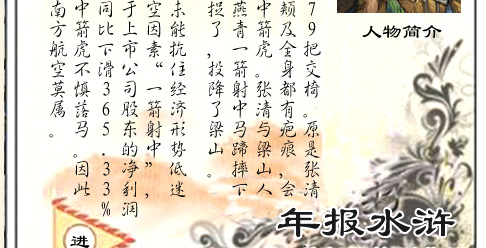 人物简介
79把交椅。原是张清
颊及全身都有疤痕，会
中箭虎。张清与梁山人
燕青一箭射中马蹄摔下
捉了，投降了梁山。
未能抗住经济形势低迷
空因素“一箭射中”，
于上市公司股东的净利润
同比下滑365.33%
中箭虎不慎落马。因此
南方航空莫属。
年报水浒
进